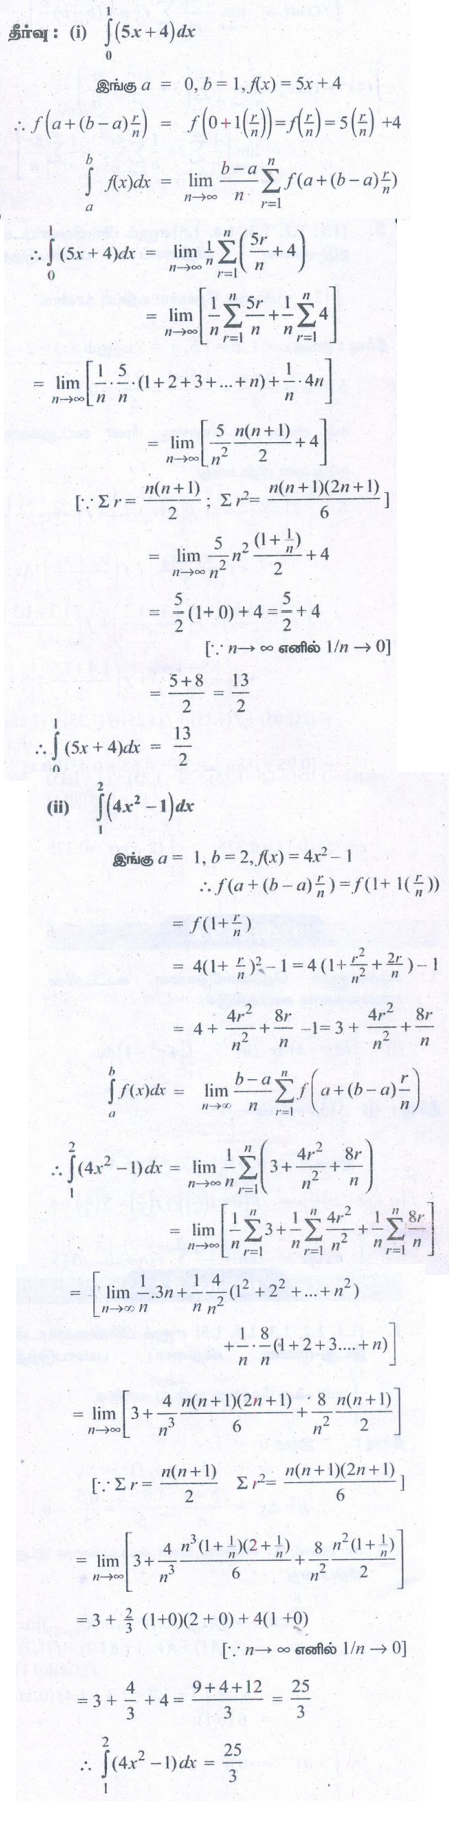 தீர்வு : (i) ∫₀¹ (5x + 4) dx
இங்கு a = 0, b = 1, f(x) = 5x + 4
∴ f(a + (b – a) r/n) = f(0 + 1(r/n)) = f(r/n) = 5(r/n) + 4
∫ₐᵇ f(x)dx = lim_{n→∞} (b–a)/n Σ_{r=1}^{n} f(a + (b – a) r/n)
∴ ∫₀¹ (5x + 4)dx = lim_{n→∞} 1/n Σ_{r=1}^{n} (5r/n + 4)
= lim_{n→∞} [1/n Σ_{r=1}^{n} 5r/n + 1/n Σ_{r=1}^{n} 4]
= lim_{n→∞} [1/n · 5/n · (1 + 2 + 3 + ... + n) + 1/n · 4n]
= lim_{n→∞} [5/n² n(n+1)/2 + 4]
[∵ Σ r = n(n+1)/2 ; Σ r² = n(n+1)(2n+1)/6 ]
= lim_{n→∞} 5/n² n² (1 + 1/n)/2 + 4
= 5/2 (1+0) + 4 = 5/2 + 4
[∵ n→ ∞ எனில் 1/n → 0]
= (5+8)/2 = 13/2
∴ ∫₀¹ (5x + 4)dx = 13/2
(ii) ∫₁² (4x² – 1) dx
இங்கு a = 1, b = 2, f(x) = 4x² – 1
∴ f(a + (b – a) r/n) = f(1 + 1(r/n))
= f(1 + r/n)
= 4(1 + r/n)² – 1 = 4 (1 + r²/n² + 2r/n) – 1
= 4 + 4r²/n² + 8r/n –1 = 3 + 4r²/n² + 8r/n
∫ₐᵇ f(x)dx = lim_{n→∞} (b–a)/n Σ_{r=1}^{n} f(a + (b – a) r/n)
∴ ∫₁² (4x² – 1) dx = lim_{n→∞} 1/n Σ_{r=1}^{n} (3 + 4r²/n² + 8r/n)
= lim_{n→∞} [1/n Σ_{r=1}^{n} 3 + 1/n Σ_{r=1}^{n} 4r²/n² + 1/n Σ_{r=1}^{n} 8r/n]
= [lim_{n→∞} 1/n .3n + 1/n 4/n² (1² + 2² + ... + n²)
+ 1/n · 8/n (1 + 2 + 3.... + n)]
= lim_{n→∞} [3 + 4/n³ n(n+1)(2n+1)/6 + 8/n² n(n+1)/2]
[∵ Σ r = n(n+1)/2 Σ r² = n(n+1)(2n+1)/6 ]
= lim_{n→∞} [3 + 4/n³ n³(1 + 1/n)(2 + 1/n)/6 + 8/n² n²(1 + 1/n)/2]
= 3 + 2/3 (1+0)(2 + 0) + 4(1 +0)
[∵ n→ ∞ எனில் 1/n → 0]
= 3 + 4/3 + 4 = (9 + 4 + 12)/3 = 25/3
∴ ∫₁² (4x² – 1) dx = 25/3